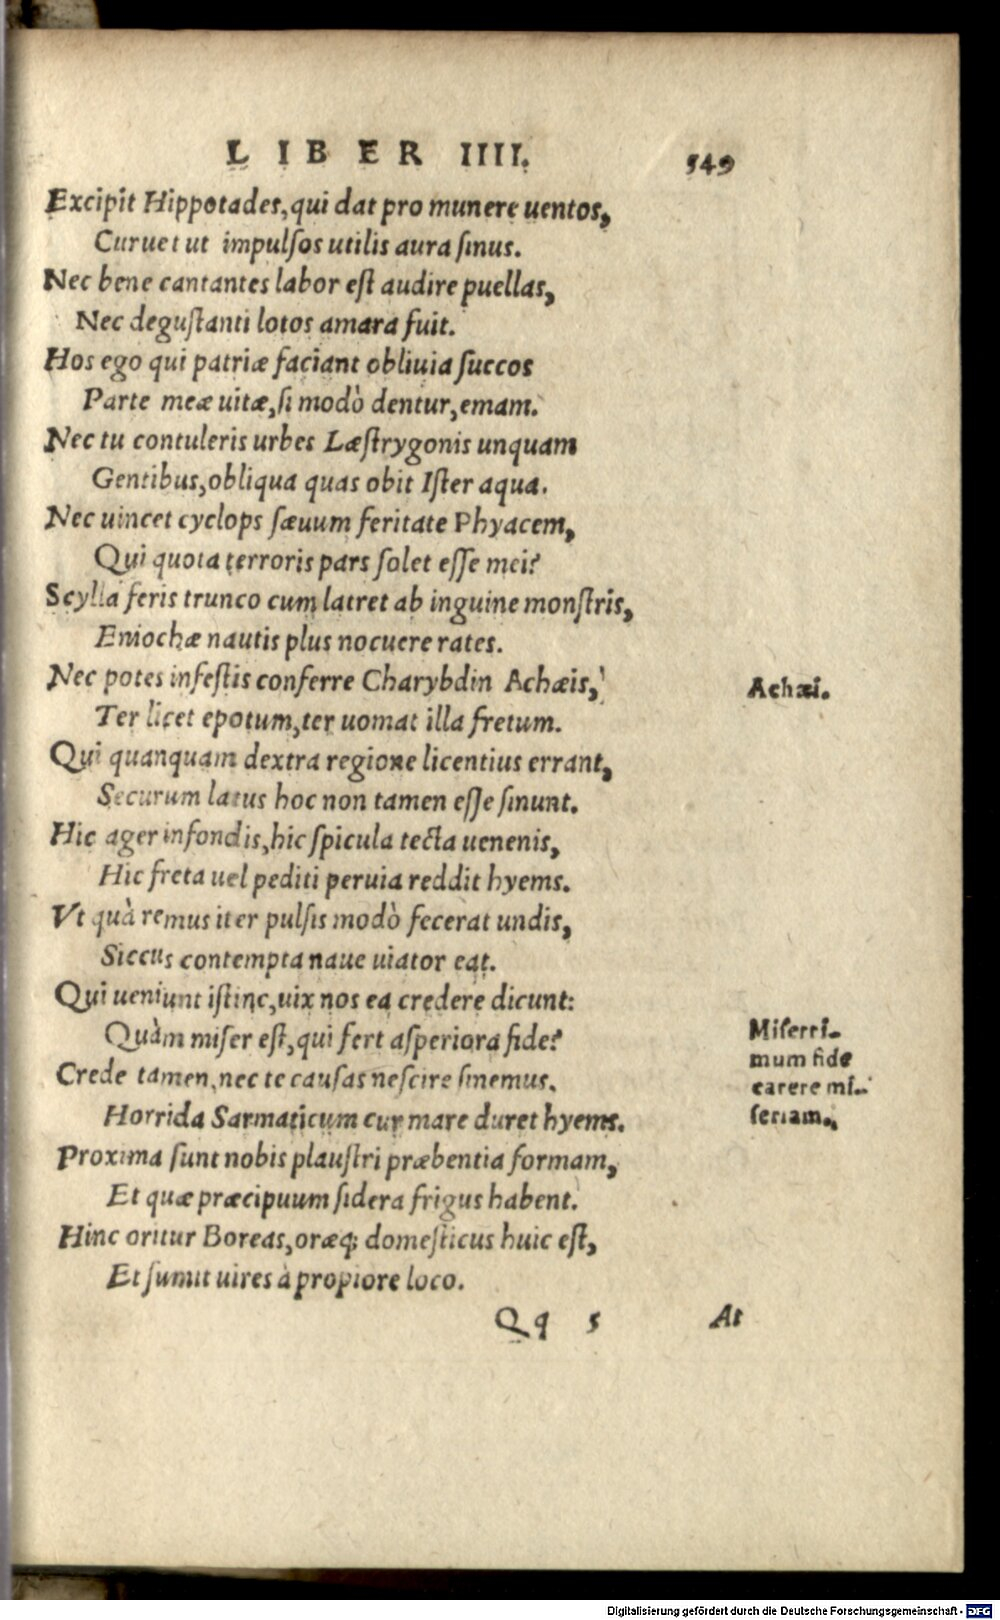 LIBER IIII. 549
Excipit Hippotades, qui dat pro munere uentos,
Curuet ut impulſos utilis aura ſinus.
Nec bene cantantes labor eſt audire puellas,
Nec deguſtanti lotos amara fuit.
Hos ego qui patriæ faciant obliuia ſuccos
Parte meæ uitæ, ſi modò dentur, emam.
Nec tu contuleris urbes Læſtrygonis unquam
Gentibus, obliqua quas obit Iſter aqua.
Nec uincet cyclops ſæuum feritate Phyacem,
Qui quota terroris pars ſolet eſſe mei?
Scylla feris trunco cum latret ab inguine monſtris,
Eniochæ nautis plus nocuere rates.
Nec potes infeſtis conferre Charybdin Achæis,
Achæi.
Ter licet epotum, ter uomat illa fretum.
Qui quanquam dextra regione licentius errant,
Securum latus hoc non tamen eſſe ſinunt.
Hic ager infondis, hic ſpicula tecta uenenis,
Hic freta uel pediti peruia reddit hyems.
Vt quà remus iter pulſis modò fecerat undis,
Siccus contempta naue uiator eat.
Qui ueniunt iſtinc, uix nos ea credere dicunt:
Quàm miſer eſt, qui fert aſperiora fide?
Miſerri-
mum fide
carere mi-
ſeriam.
Crede tamen, nec te cauſas neſcire ſinemus.
Horrida Sarmaticum cur mare duret hyems.
Proxima ſunt nobis plauſtri præbentia formam,
Et quæ præcipuum ſidera frigus habent.
Hinc oritur Boreas, oræq; domeſticus huic eſt,
Et ſumit uires à propiore loco.
Qq 5 At
Digitalisierung gefördert durch die Deutsche Forschungsgemeinschaft - DFG